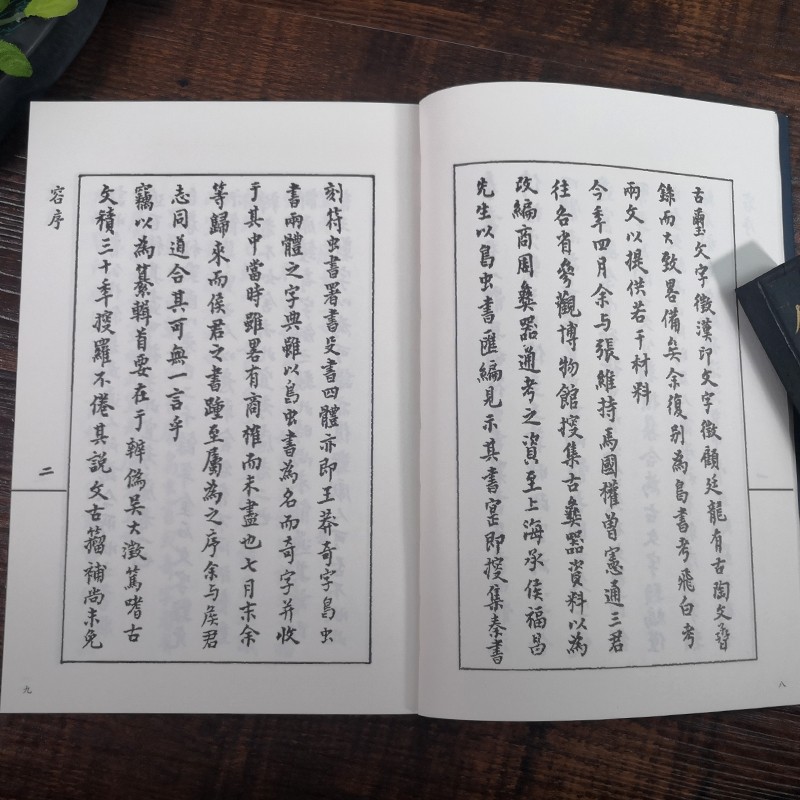 古璽文字徵漢印文字徵顧廷龍有古陶文孴
錄而大致畧備矣余復別為鳥書考飛白考
兩文以提供若干材料
今年四月余与張維持馬國權曾憲通三君
往各省參觀博物館搜集古彝器資料以為
改編商周彝器通考之資至上海承侯福昌
先生以鳥虫書匯編見示其書寔即搜集秦書
八
刻符虫書署書殳書四體亦即王莽奇字鳥虫
書兩體之字典雖以鳥虫書為名而奇字并收
于其中當時雖畧有商榷而未盡也七月末余
等歸來而侯君之書踵至屬為之序余与侯君
志同道合其可無一言乎
竊以為纂輯首要在于辨偽吳大澂篤嗜古
文積三十年搜羅不倦其說文古籀補尚未免
容序
二
九